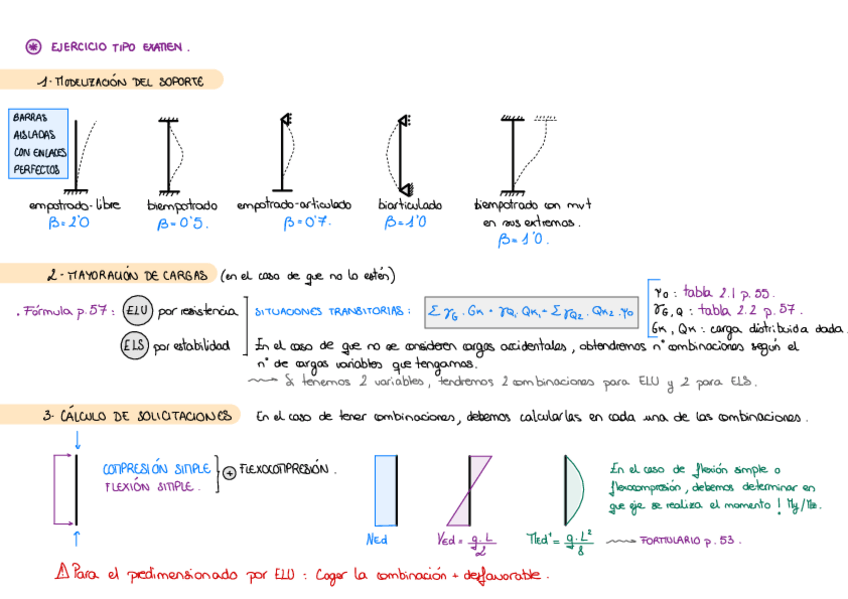 * EJERCICIO TIPO EXAMEN.
1-MODELIZACIÓN DEL SOPORTE
BARRAS
AISLADAS
CON ENLACES
PERFECTOS
empotrado-libre
β=2'0
biempotrado
β=0'5.
empotrado-articulado
β=0'7.
biarticulado
β=1'0
biempotrado con mvt
en sus extremos.
β=1'0.
2-MAYORACIÓN DE CARGAS (en el caso de que no lo estén)
. Fórmula p.57 : ELU por resistencia
ELS por estabilidad
SITUACIONES TRANSITORIAS :
Σ γG · GK + γQ1 · QK1 + Σ γQ2 · QK2 · ψ0
ψ0 : tabla 2.1 p.55.
γG,Q : tabla 2.2 p.57.
GK, QK : carga distribuida dada.
En el caso de que no se consideren cargas accidentales, obtendremos nº combinaciones según el
nº de cargas variables que tengamos.
Si tenemos 2 variables, tendremos 2 combinaciones para ELU y 2 para ELS.
3-CÁLCULO DE SOLICITACIONES En el caso de tener combinaciones, debemos calcularlas en cada una de las combinaciones.
COMPRESIÓN SIMPLE
FLEXIÓN SIMPLE.
+ FLEXOCOMPRESIÓN.
NEd
VEd = q·L/2
MEd' = q·L²/8
FORMULARIO p.53.
En el caso de flexión simple o
flexocompresión, debemos determinar en
que eje se realiza el momento ! My/Mz.
⚠ Para el predimensionado por ELU : Coger la combinación + desfavorable.